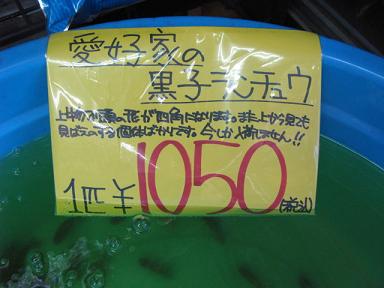 愛好家の
黒子ランチュウ
上物は頭の形が四角になります。また上から見ても
見ばえのする個体ばかりです。今しか入荷しません!!
1匹￥1050(税込)